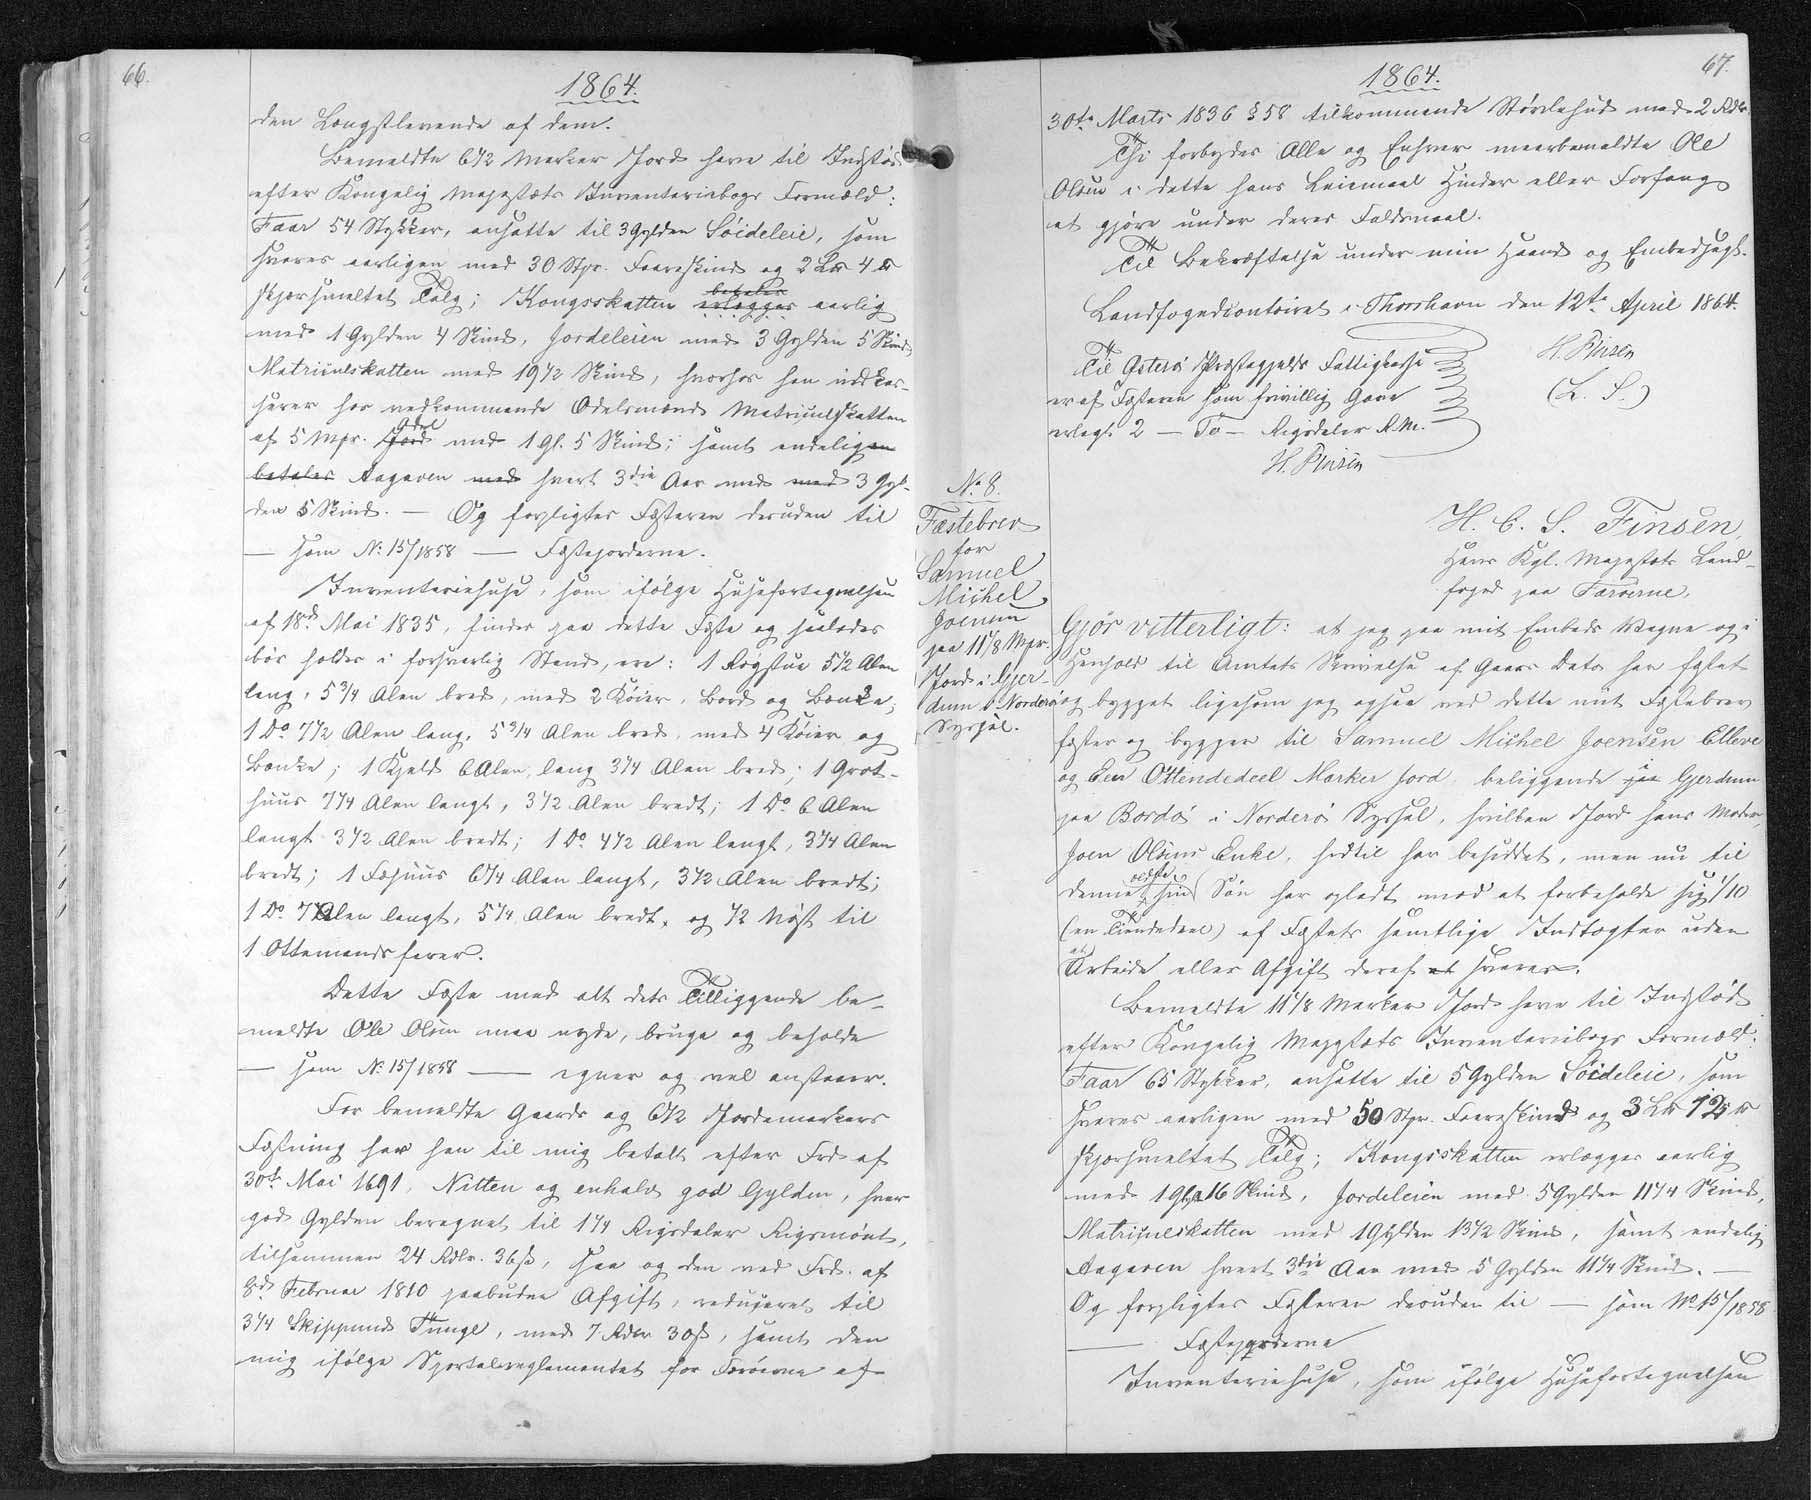 66.
1864.
den Længstlevende af dem.
Bemeldte 6 1/2 Marker Jord have til Indstød
efter Kongelig Majestæts Inventariebogs Formæld:
Faar 54 Stykker, ansatte til 3 Gylden Söideleie, som
svares aarligen med 30 Stpr. Faareskind og 2 L℔ 4 ℔
skjærsmeltet Talg; Kongsskatten betales erlægges aarlig
med 1 Gylden 4 Skind, Jordeleien med 3 Gylden 5 Skind
Matriculskatten med 19 1/2 Skind, hvorhos han indkas-
serer hos vedkommende Odelsmænd Matriculskatten
af 5 Mpr. Jord Odel med 1 Gl. 5 Skind; samt endeligen
betales Aagaven med hvert 3die Aar med med 3 Gyl-
den 5 Skind. — Og forpligtes Fæsteren desuden til
— som No 15/1858 — Fæstejorderne.
Inventariehuse, som ifølge Husefortegnelsen
af 18d Mai 1835, findes paa dette Fæste og saaledes
bör holdes i forsvarlig Stand, ere: 1 Røgstue 5 1/2 Alen
lang, 5 3/4 Alen bred, med 2 Köier, Bord og Bænke;
1 Do 7 1/2 Alen lang, 5 3/4 Alen bred, med 4 Köier og
Bænke; 1 Kjeld 6 Alen lang 3 1/4 Alen bred; 1 Grot-
huus 7 1/4 Alen langt, 3 1/2 Alen bredt; 1 Do 6 Alen
langt 3 1/2 Alen bredt; 1 Do 4 1/2 Alen langt, 3 1/4 Alen
bredt; 1 Fæhuus 6 1/4 Alen langt, 3 1/2 Alen bredt;
1 Do 7 Alen langt, 5 1/4 Alen bredt, og 1/2 Nøst til
1 Ottemandsfarer.
Dette Fæste med alt dets Tilliggende be-
meldte Ole Olsen maa nyde, bruge og beholde
— som No 15/1858 — egner og vel anstaaer.
For bemeldte Gaards og 6 1/2 Jordemarkers
Fæstning har han til mig betalt efter Frd. af
30te Mai 1691, Nitten og enhalv god Gylden, hver
god Gylden beregnet til 1 1/4 Rigsdaler Rigsmønt,
tilsammen 24 Rdlr. 36 ß, saa og den ved Frd. af
8d Februar 1810 paabudne Afgift, reduceret til
3 1/4 Skippund Tunge, med 7 Rdlr 30 ß, samt den
mig ifølge Sportelreglementet for Færöerne af
67.
1864.
30te Marts 1836 § 58 tilkommende Støvlehud med 2 Rdlr.
Thi forbydes Alle og Enhver meerbemeldte Ole
Olsen i dette hans Leiemaal Hinder eller Forfang
at gjøre under deres Faldsmaal.
Til Bekræftelse under min Haand og Embedssegl.
Landfogedcontoiret i Thorshavn den 12te April 1864.
H. Finsen
(L. S.)
Til Østerö Præstegjelds Fattigkasse
er af Fæsteren som frivillig Gave
erlagt 2 — To — Rigsdaler R.M.
H. Finsen
No 8.
Fæstebrev
for
Samuel
Michel
Joensen
paa 11 1/8 Mpr.
Jord i Gjer-
dum i Norderö
Syssel.
H. C. S. Finsen,
Hans Kgl. Majestæts Land-
foged paa Færöerne,
Gjör vitterligt: at jeg paa mit Embeds Vegne og i
Henhold til Amtets Skrivelse af Gaars Dato har fæstet
og bygget ligesom jeg ogsaa ved dette mit Fæstebrev
fæster og bygger til Samuel Michel Joensen Elleve
og Een Ottendedeel Marker Jord, beliggende paa i Gjerdum
paa Bordö i Norderö Syssel, hvilken Jord hans Moder,
Joen Olsens Enke, hidtil har besiddet, men nu til
denne sin ældste Sön har opladt mod at forbeholde sig 1/10
(en Tiendedeel) af Fæstets samtlige Indtægter uden
at Arbeide eller Afgift deraf at svares.
Bemeldte 11 1/8 Marker Jord have til Indstød
efter Kongelig Majestæts Inventariibogs Formæld:
Faar 65 Stykker, ansatte til 5 Gylden Söideleie, som
svares aarligen med 50 Stpr. Faareskind og 3 L℔ 12 ℔
skjærsmeltet Talg; Kongsskatten erlægges aarlig
med 1 Gyl. 16 Skind, Jordeleien med 5 Gylden 11 1/4 Skind,
Matriculskatten med 1 Gylden 13 1/2 Skind, samt endelig
Aagaven hvert 3die Aar med 5 Gylden 11 1/4 Skind. —
Og forpligtes Fæsteren desuden til — som No 15/1858
— Fæstejorderne
Inventariehuse, som ifølge Husefortegnelsen